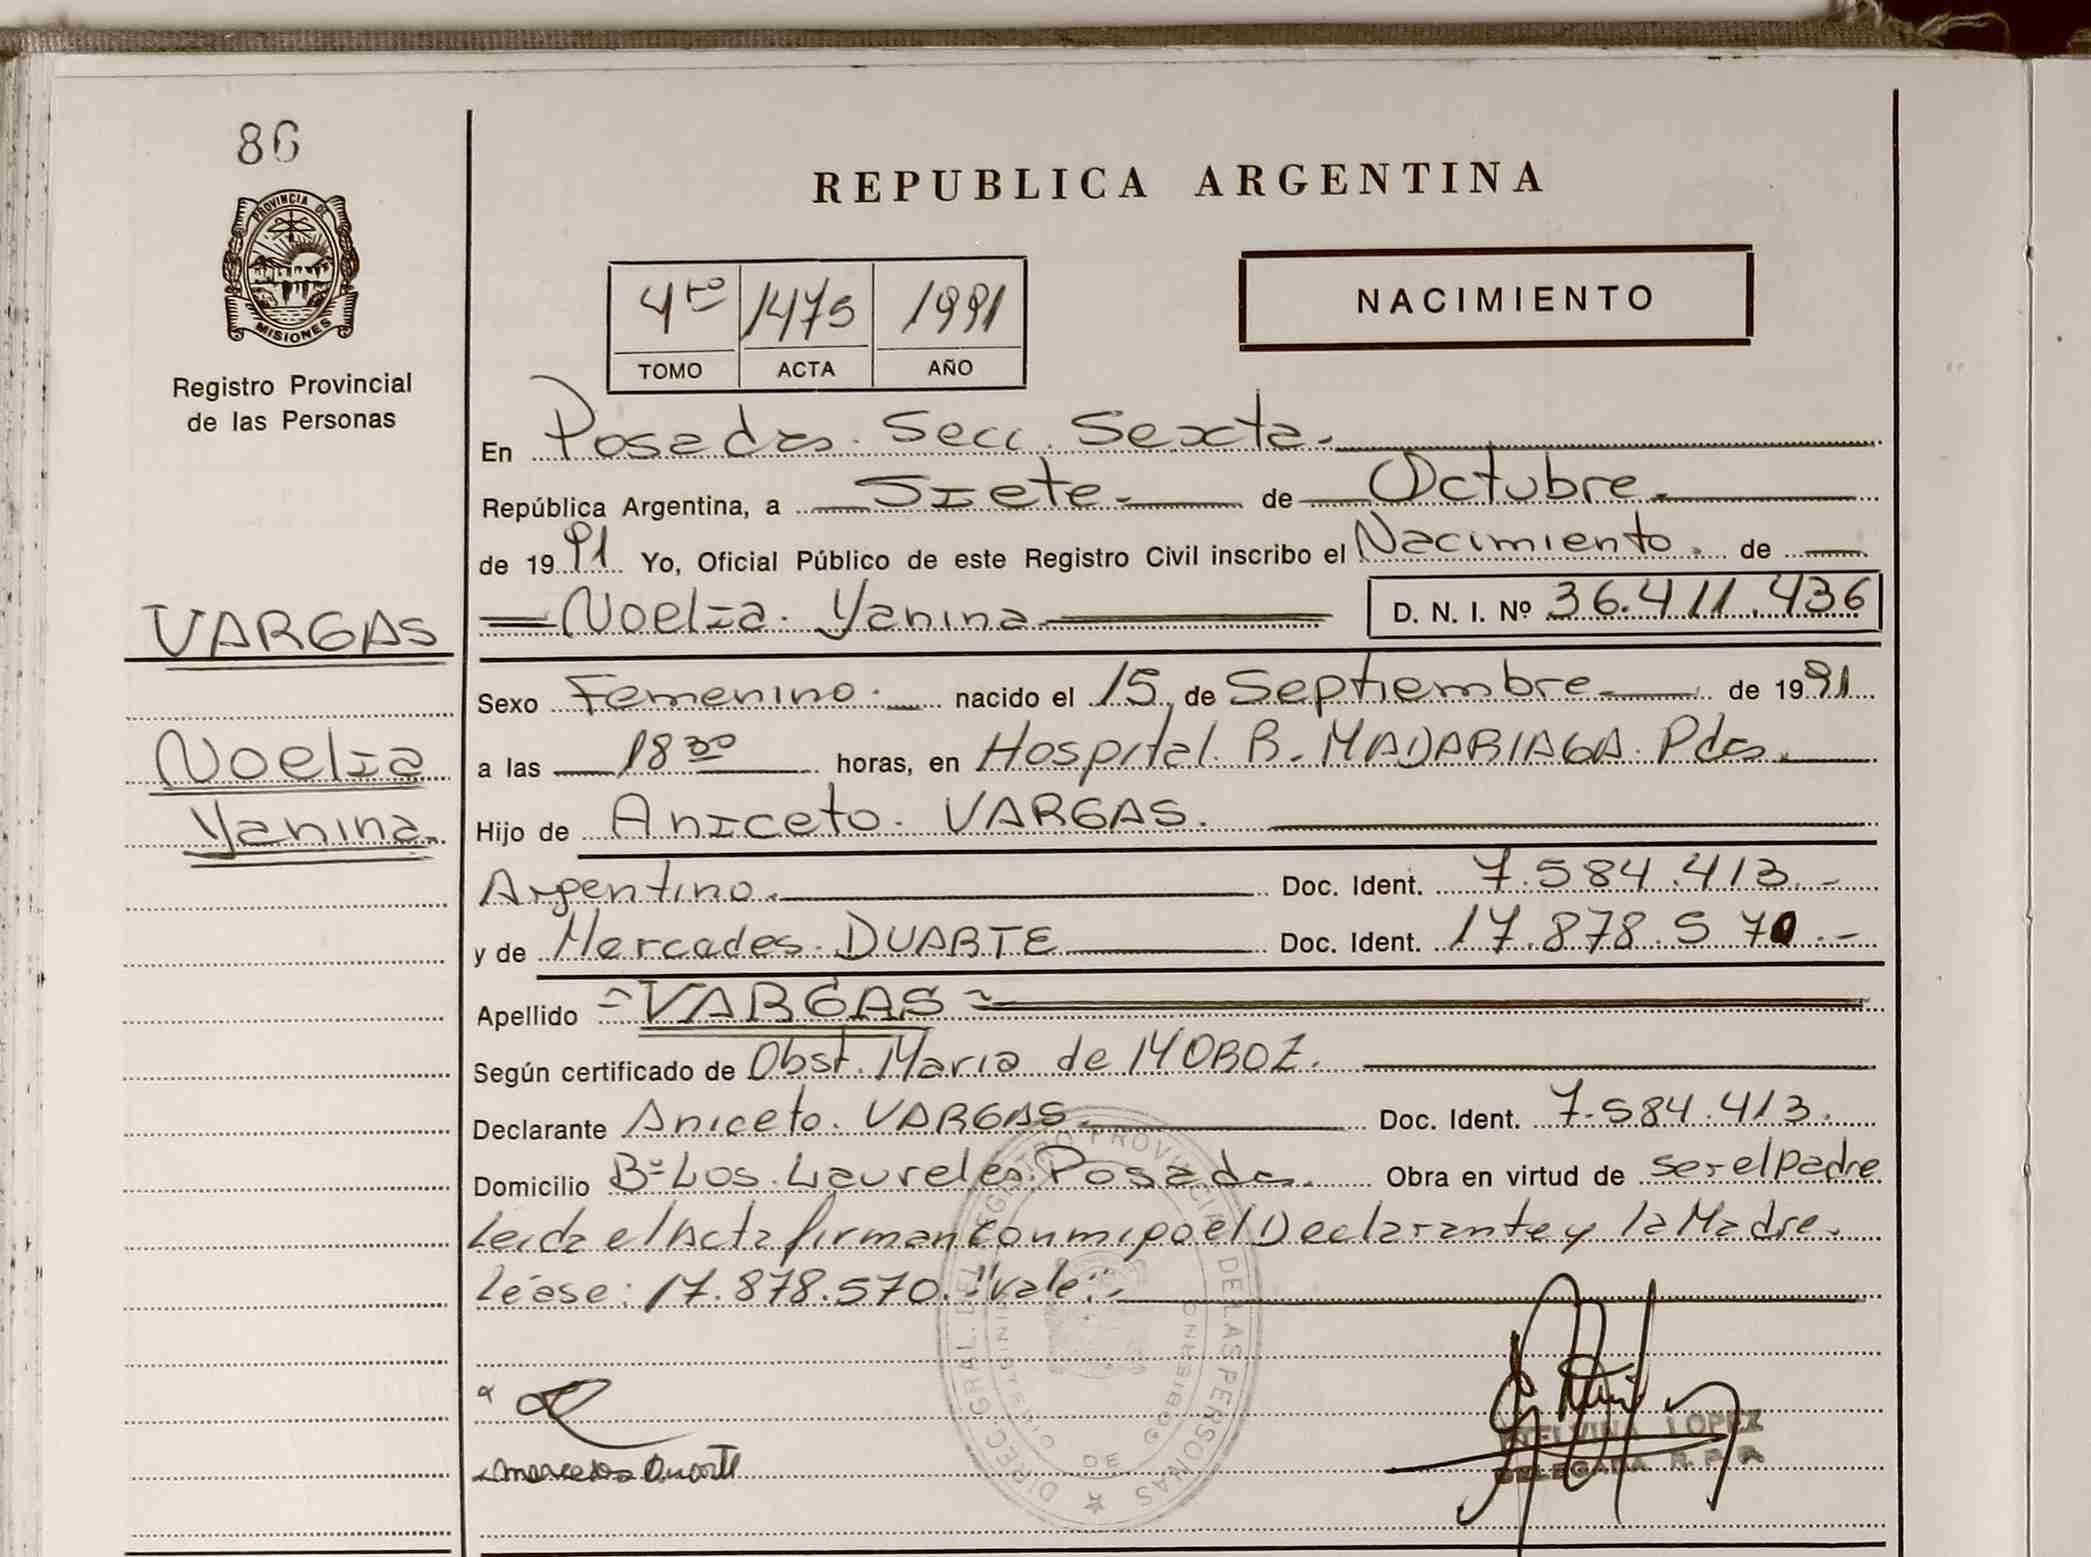 86
PROVINCIA DE
MISIONES
Registro Provincial
de las Personas
REPUBLICA ARGENTINA
4to 1475 1991
TOMO ACTA AÑO
NACIMIENTO
En Posadas. Secc. Sexta.
República Argentina, a Siete. de Octubre.
de 1991 Yo, Oficial Público de este Registro Civil inscribo el Nacimiento. de
Noelia. Yanina D. N. I. Nº 36.411.436
VARGAS
Noelia
Yanina.
Sexo Femenino. nacido el 15 de Septiembre de 1991
a las 18 30 horas, en Hospital. R. MADARIAGA. Pdas.
Hijo de Aniceto. VARGAS.
Argentino. Doc. Ident. 7.584.413.-
y de Mercades. DUARTE Doc. Ident. 17.878.570.-
Apellido =VARGAS=
Según certificado de Obst. Maria de MOROZ.
Declarante Aniceto. VARGAS. Doc. Ident. 7.584.413.
Domicilio Bº Los. Laureles. Posadas. Obra en virtud de ser el padre
Leida el Acta firman conmigo el Declarante y la Madre.
Léase: 17.878.570. "Vale".-
DIREC. GRAL. DEL REGISTRO PROVINCIAL DE LAS PERSONAS
MINISTERIO DE GOBIERNO
mercedes Duarte
LOPEZ
DELEGADA R. P. P.